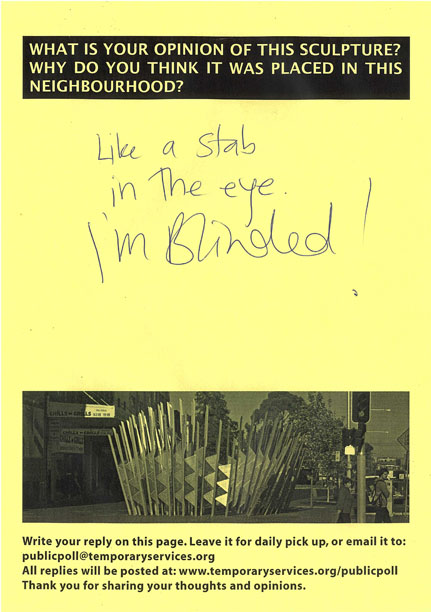 WHAT IS YOUR OPINION OF THIS SCULPTURE?
WHY DO YOU THINK IT WAS PLACED IN THIS
NEIGHBOURHOOD?
Like a stab
in The eye.
I'm Blinded!
Write your reply on this page. Leave it for daily pick up, or email it to:
publicpoll@temporaryservices.org
All replies will be posted at: www.temporaryservices.org/publicpoll
Thank you for sharing your thoughts and opinions.